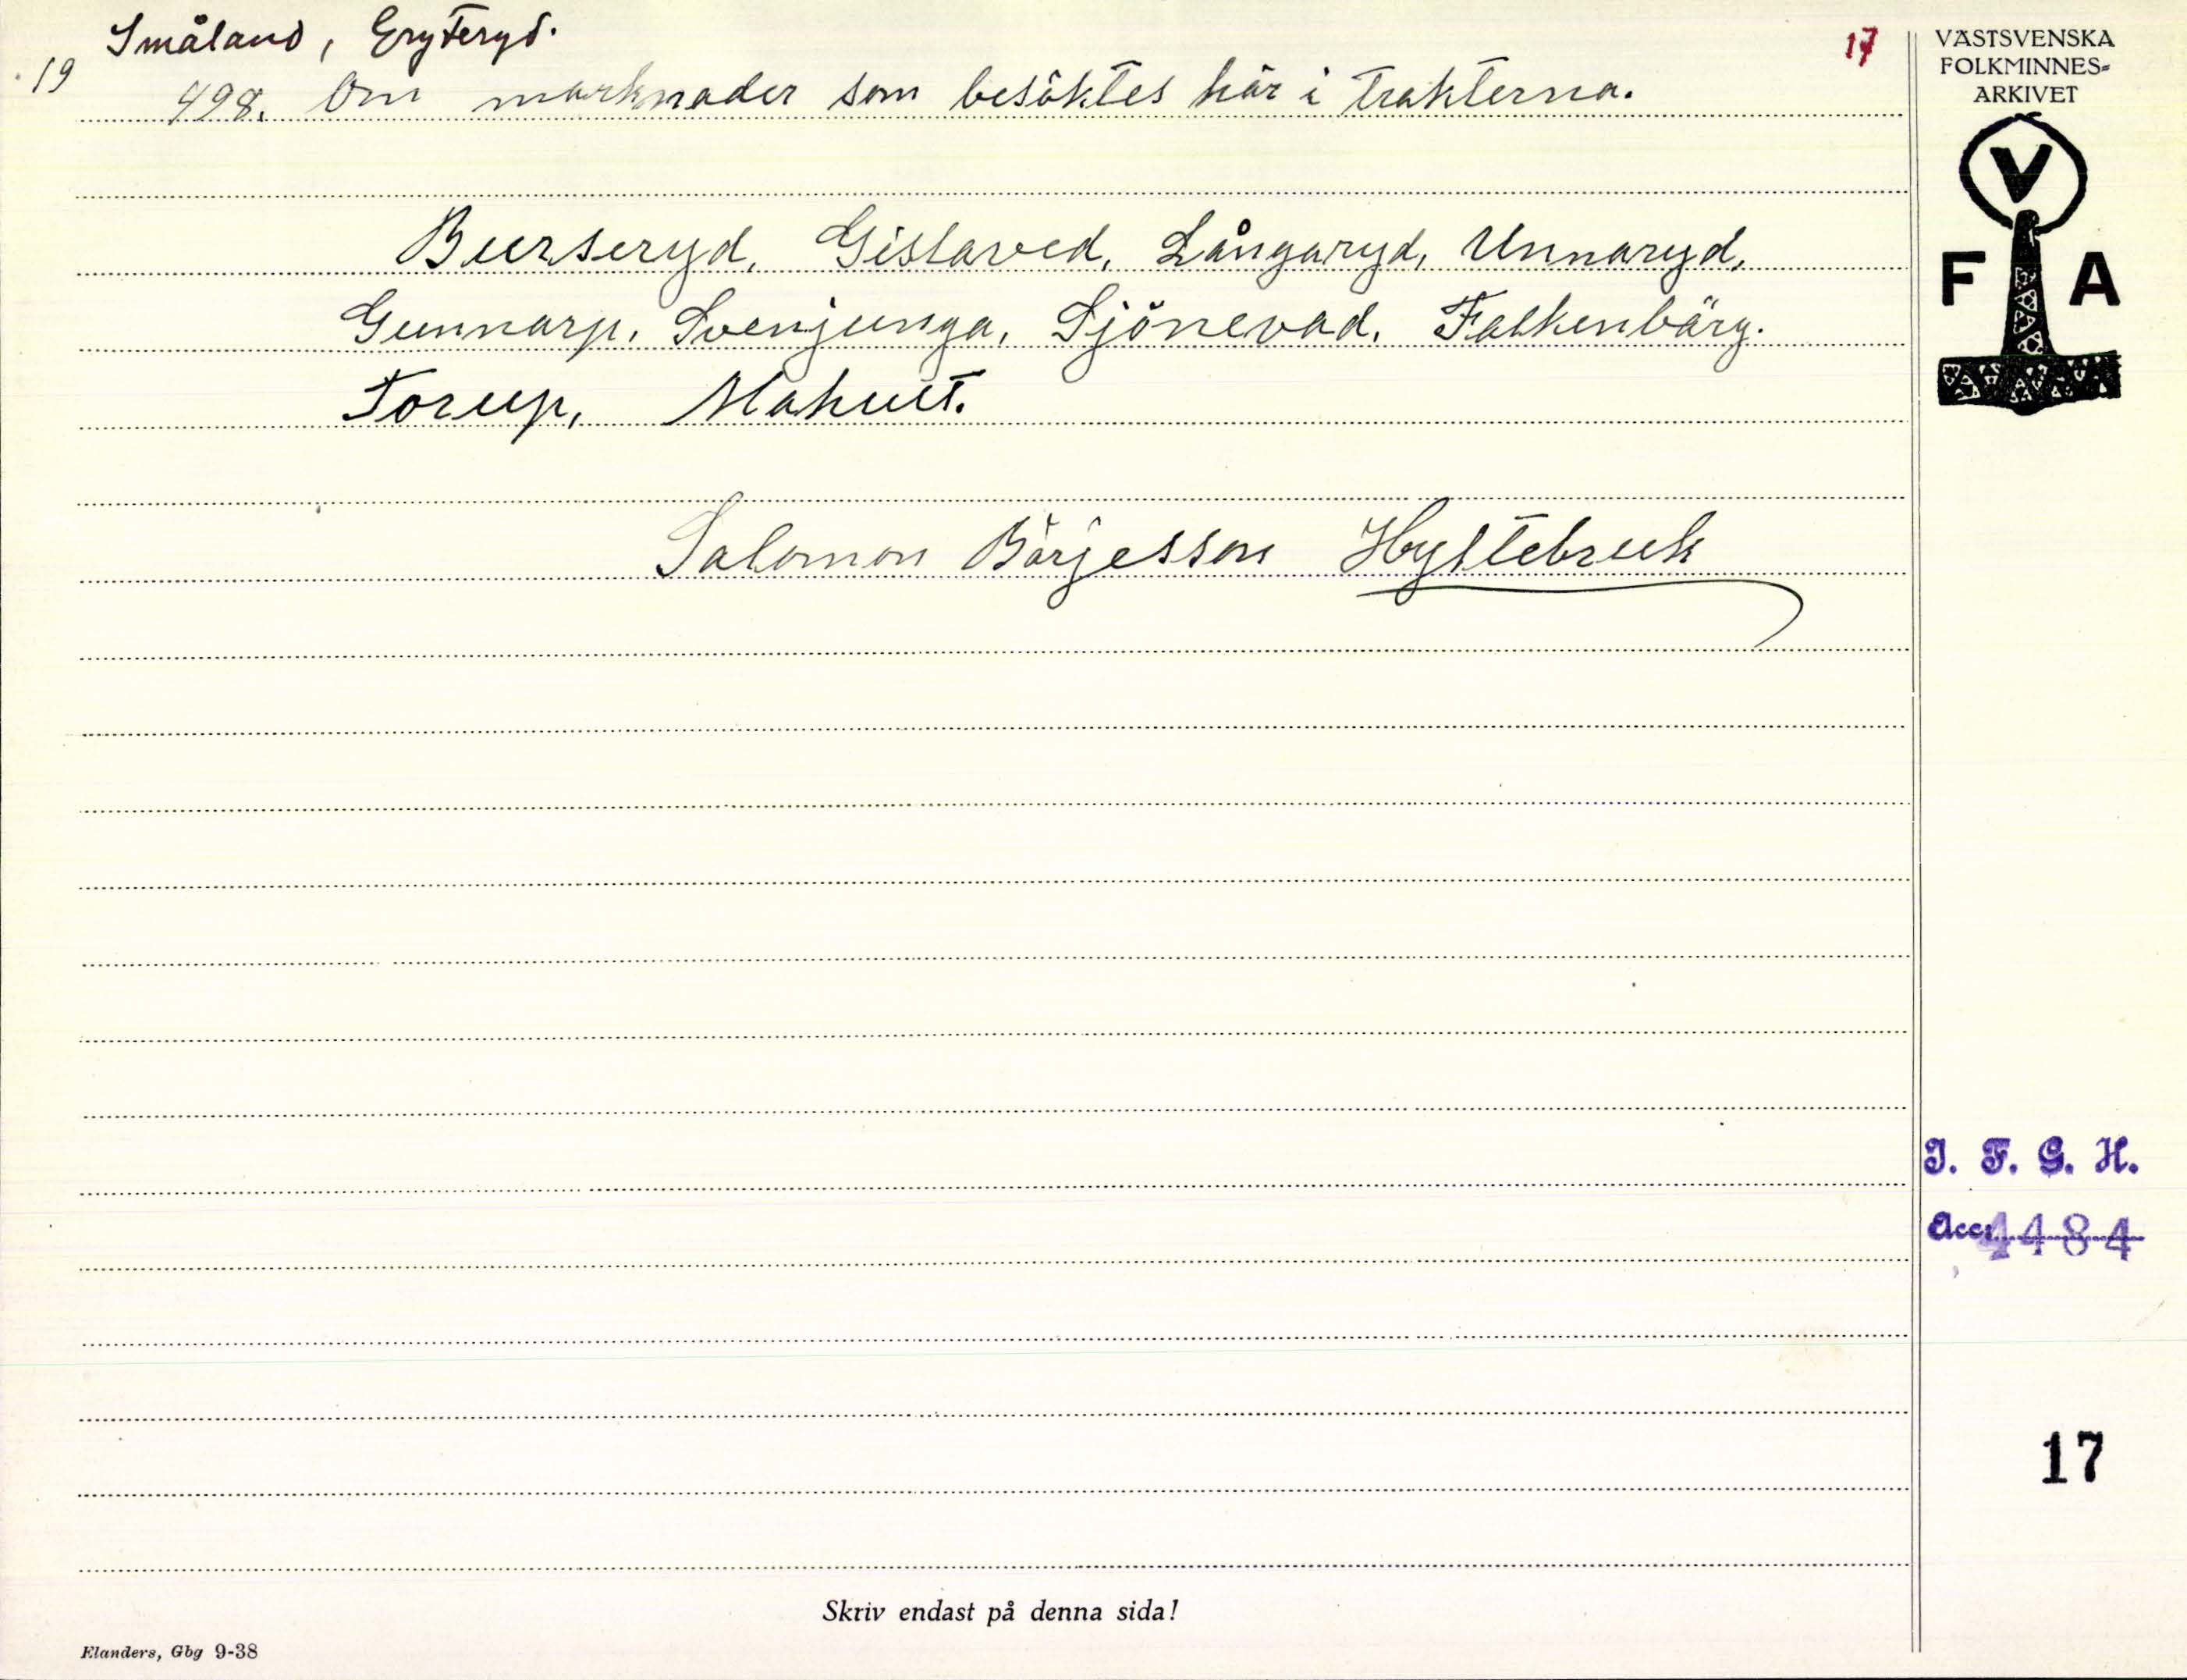 Småland, Gryteryd.
17
19
498. Om marknader som besöktes här i trakterna.
Burseryd, Gislaved, Långaryd, Unnaryd,
Gunnarp, Svenjunga, Sjönevad, Falkenbärg.
Torup, Mahult.
Salomon Börjesson Hyltebruk
VÄSTSVENSKA
FOLKMINNES-
ARKIVET
V
F A
I. F. G. H.
Acc. 4484
17
Skriv endast på denna sida!
Elanders, Gbg 9-38